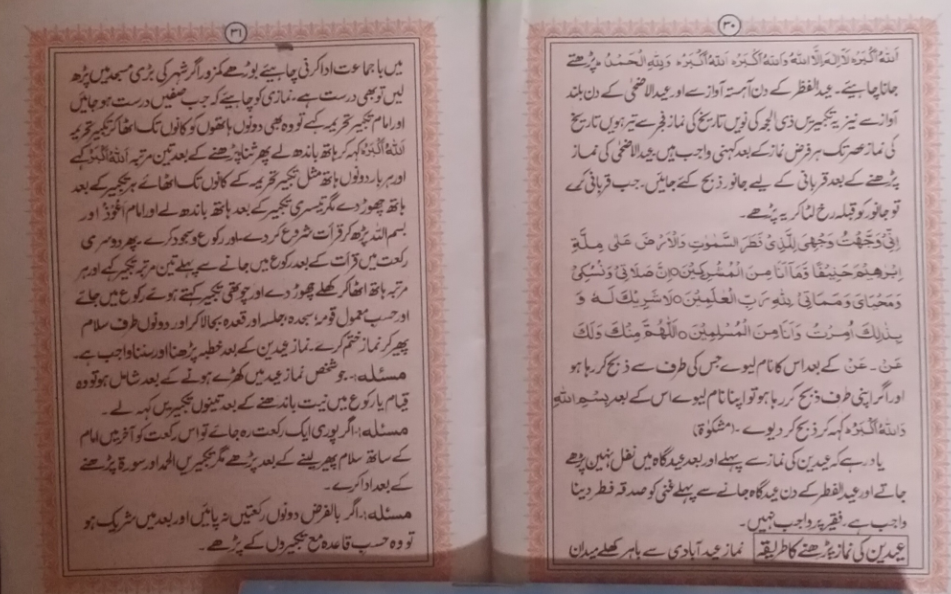 ۳۰
اَللّٰهُ اَكْبَرُ لَا اِلٰهَ اِلَّا اللّٰهُ وَاللّٰهُ اَكْبَرُ اَللّٰهُ اَكْبَرُ وَلِلّٰهِ الْحَمْدُ پڑھتے
جانا چاہیئے۔ عید الفطر کے دن آہستہ آواز سے اور عید الاضحٰی کے دن بلند
آواز سے نیز یہ تکبیریں ذی الحجہ کی نویں تاریخ کی نماز فجر سے تیرہویں تاریخ
کی نماز عصر تک ہر فرض نماز کے بعد کہنی واجب ہیں۔ عید الاضحٰی کی نماز
پڑھنے کے بعد قربانی کے لیے جانور ذبح کئے جائیں۔ جب قربانی کرے
تو جانور کو قبلہ رخ لٹا کر یہ پڑھے۔
اِنِّیْ وَجَّهْتُ وَجْهِیَ لِلَّذِیْ فَطَرَ السَّمٰوٰتِ وَالْاَرْضَ عَلٰی مِلَّةِ
اِبْرٰهِیْمَ حَنِیْفًا وَّمَا اَنَا مِنَ الْمُشْرِكِیْنَ ○ اِنَّ صَلَاتِیْ وَنُسُكِیْ
وَمَحْیَایَ وَمَمَاتِیْ لِلّٰهِ رَبِّ الْعٰلَمِیْنَ ○ لَا شَرِیْكَ لَهٗ وَ
بِذٰلِكَ اُمِرْتُ وَاَنَا مِنَ الْمُسْلِمِیْنَ ○ اَللّٰهُمَّ مِنْكَ وَلَكَ
عَنْ۔ عَنْ کے بعد اس کا نام لیوے جس کی طرف سے ذبح کر رہا ہو
اور اگر اپنی طرف ذبح کر رہا ہو تو اپنا نام لیوے اس کے بعد بِسْمِ اللّٰهِ
وَاللّٰهُ اَكْبَرُ کہہ کر ذبح کر دیوے۔ (مشکوٰۃ)
یاد رہے کہ عیدین کی نماز سے پہلے اور بعد عیدگاہ میں نفل نہیں پڑھے
جاتے اور عید الفطر کے دن عیدگاہ جانے سے پہلے غنی کو صدقہ فطر دینا
واجب ہے۔ فقیر پر واجب نہیں۔
عیدین کی نماز پڑھنے کا طریقہ نماز عید آبادی سے باہر کھلے میدان
۳۱
میں باجماعت ادا کرنی چاہیئے بوڑھے کمزور اگر شہر کی بڑی مسجد میں پڑھ
لیں تو بھی درست ہے۔ نمازی کو چاہیئے کہ جب صفیں درست ہو جائیں
اور امام تکبیر تحریمہ کہے تو وہ بھی دونوں ہاتھوں کو کانوں تک اٹھا کر تکبیر تحریمہ
اَللّٰهُ اَكْبَرُ کہہ کر ہاتھ باندھ لے پھر ثنا پڑھنے کے بعد تین مرتبہ اَللّٰهُ اَكْبَرُ کہے
اور ہر بار دونوں ہاتھ مثل تکبیر تحریمہ کے کانوں تک اٹھائے ہر تکبیر کے بعد
ہاتھ چھوڑ دے مگر تیسری تکبیر کے بعد ہاتھ باندھ لے اور امام اَعُوْذُ اور
بسم اللہ پڑھ کر قرات شروع کر دے۔ اور رکوع و سجود کرے۔ پھر دوسری
رکعت میں قرات کے بعد رکوع میں جانے سے پہلے تین مرتبہ تکبیر کہے اور ہر
مرتبہ ہاتھ اٹھا کر کھلے چھوڑ دے اور چوتھی تکبیر کہتے ہوئے رکوع میں جائے
اور حسب معمول قومہ، سجدہ، جلسہ اور قعدہ بجا لا کر اور دونوں طرف سلام
پھیر کر نماز ختم کرے۔ نماز عیدین کے بعد خطبہ پڑھنا اور سننا واجب ہے۔
مسئلہ:۔ جو شخص نماز عید میں کھڑے ہونے کے بعد شامل ہو تو وہ
قیام یا رکوع میں نیت باندھنے کے بعد تینوں تکبیریں کہہ لے۔
مسئلہ:۔ اگر پوری ایک رکعت رہ جائے تو اس رکعت کو آخر میں امام
کے ساتھ سلام پھیر لینے کے بعد پڑھے مگر تکبیریں الحمد اور سورۃ پڑھنے
کے بعد ادا کرے۔
مسئلہ:۔ اگر بالفرض دونوں رکعتیں نہ پائیں اور بعد میں شریک ہو
تو وہ حسب قاعدہ مع تکبیروں کے پڑھے۔